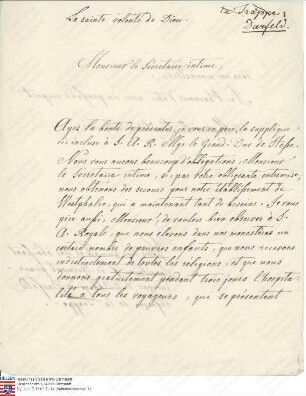 La sainte volonté de Dieu.
La Trappe
Darfeld.
Monsieur le Secrétaire intime,
Ayez la bonté de présenter, je vous en prie, la supplique
ci-incluse à S. A. R. Mgr le Grand-Duc de Hesse.
Nous vous aurons beaucoup d'obligations, Monsieur
le Secrétaire intime, si, par votre obligeante entremise,
nous obtenons des secours pour notre établissement de
Westphalie, qui a maintenant tant de besoins. Je vous
prie aussi, Monsieur, de vouloir bien observer à S.
A. Royale, que nous élevons dans nos monastères un
certain nombre de pauvres enfants, que nous recevons
indistinctement de toutes les religions, et que nous
donnons gratuitement pendant trois jours l'hospita-
lité à tous les voyageurs, qui se présentent